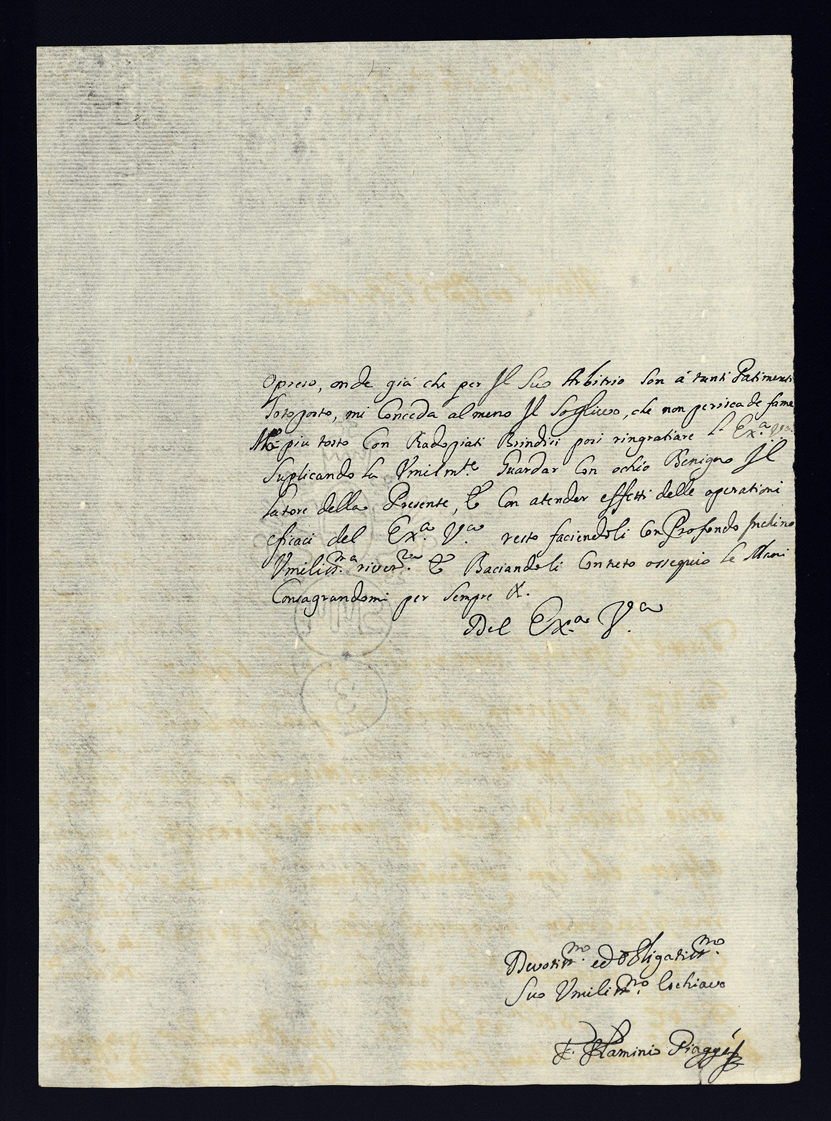 opreso, onde già che per Jl Suo Arbitrio Son à tanti Patimenti
Sotoposto, mi Conceda al meno Jl Soglieuo, che non perisca de fame
Ma piu tosto Con Radopiati Brindisi posi ringratiare l' Ex.ª V.ª
Suplicando la Vmilm.te Guardar Con ochio Benigno Jl
latore della Presente, & Con atender effetti delle operationi
eficaci del Ex.ª V.ª resto faciendoli Con Profondo Jnchino
Vmiliss.ma riuer.za & Baciandoli Con reto ossequio le Mani
Consagrandomi per Sempre &.
Del Ex.ª V.ª
Deuotiss.mo ed obligatiss.mo
Suo Vmiliss.mo Eschiauo
F. Flaminio Piaggi